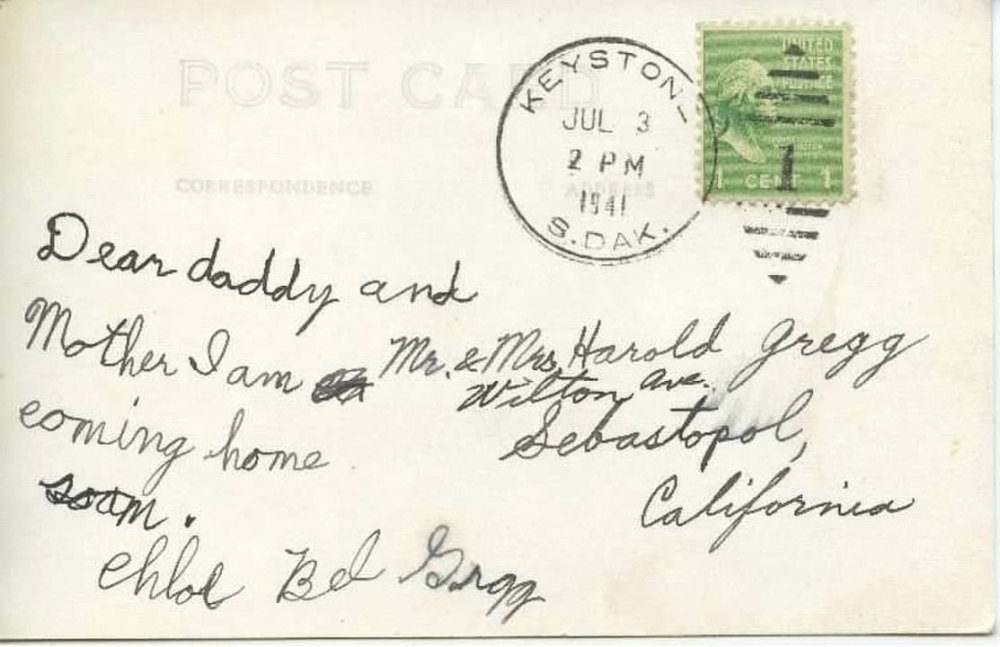 POST CARD
CORRESPONDENCE
ADDRESS
KEYSTON
JUL 3
2 PM
1941
S. DAK.
UNITED
STATES
POSTAGE
1 CENT 1
1
Dear daddy and
Mother I am
coming home
soon.
Chloe Bel Gregg
Mr. & Mrs. Harold Gregg
Wilton Ave.
Sebastopol,
California